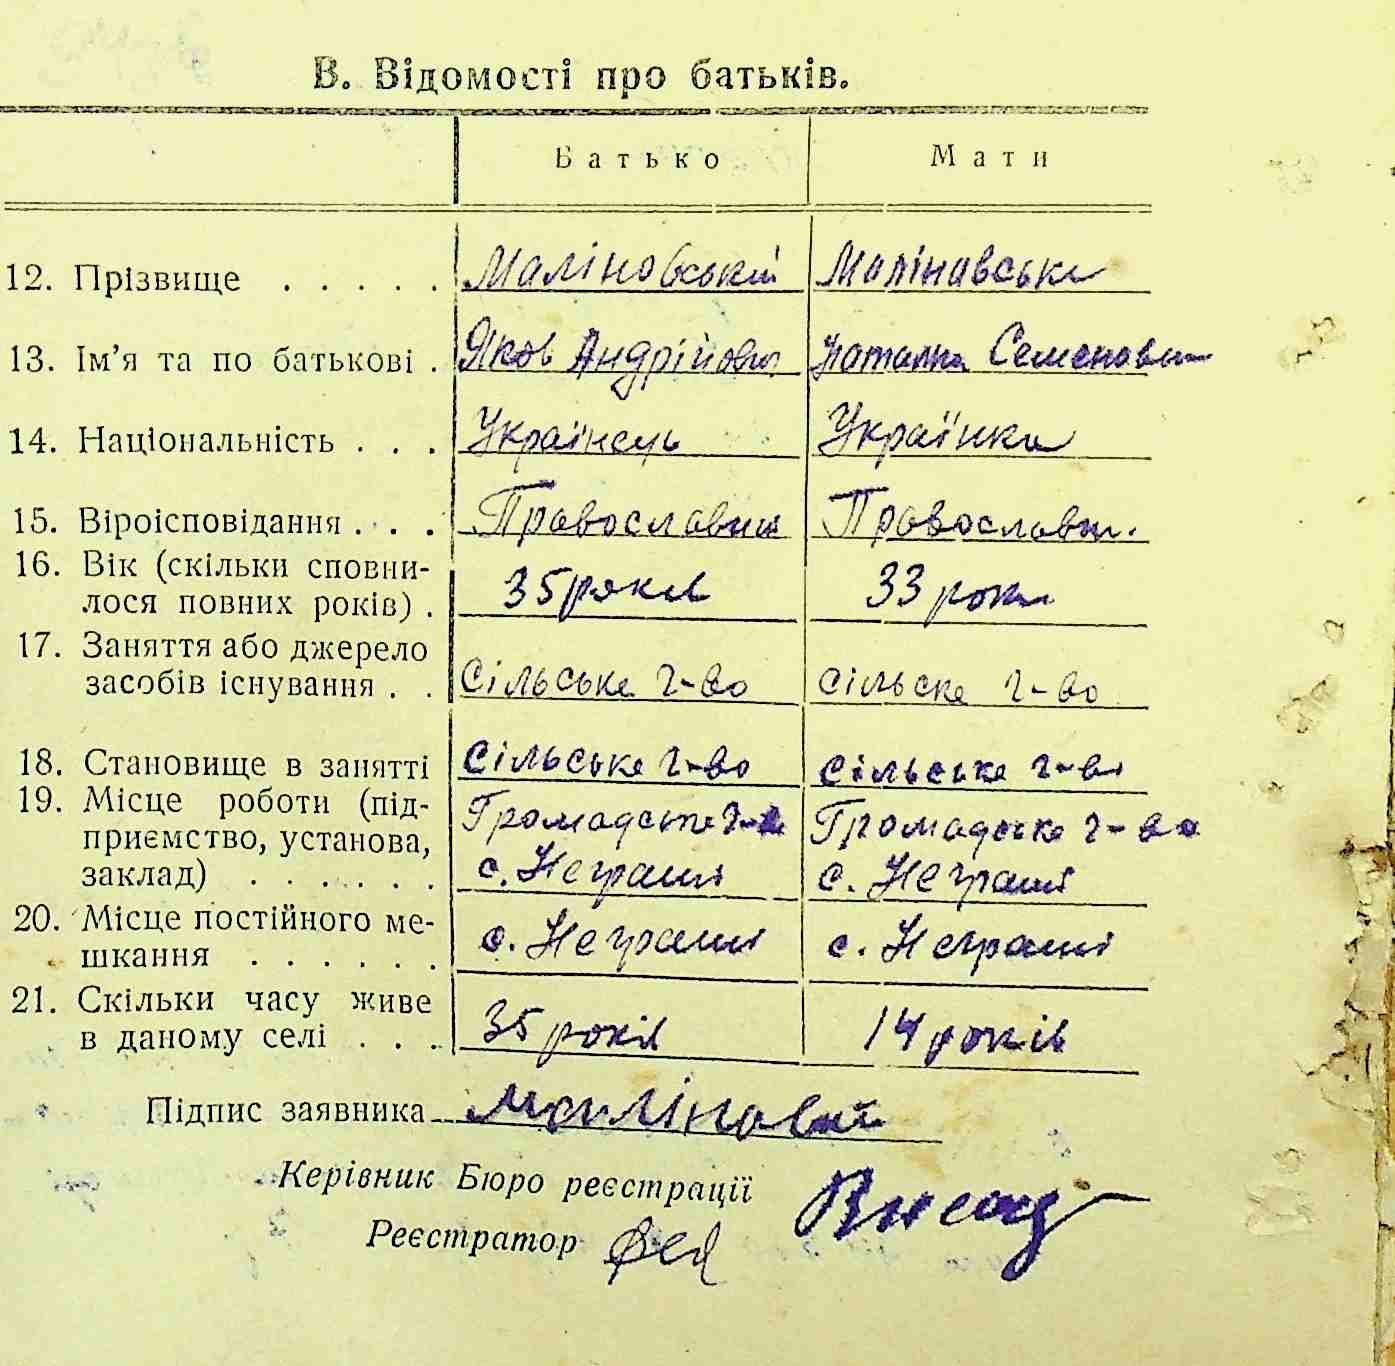 В. Відомості про батьків.
Батько Мати
12. Прізвище . . . . . Маліновський Малінавська
13. Ім’я та по батькові . Яков Андрійович Наталка Семеновна
14. Національність . . . Українець Українка
15. Віроісповідання . . . Православний Православн.
16. Вік (скільки сповни-
лося повних років) . 35 років 33 роки
17. Заняття або джерело
засобів існування . . Сільське г-во сільске г-во
18. Становище в занятті Сільське г-во сільське г-во
19. Місце роботи (під- Громадське г-во Громадське г-во
приємство, установа,
заклад) . . . . . . с. Неграші с. Неграші
20. Місце постійного ме-
шкання . . . . . . с. Неграші с. Неграші
21. Скільки часу живе
в даному селі . . . 35 років 14 років
Підпис заявника Маліновский
Керівник Бюро реєстрації
Реєстратор